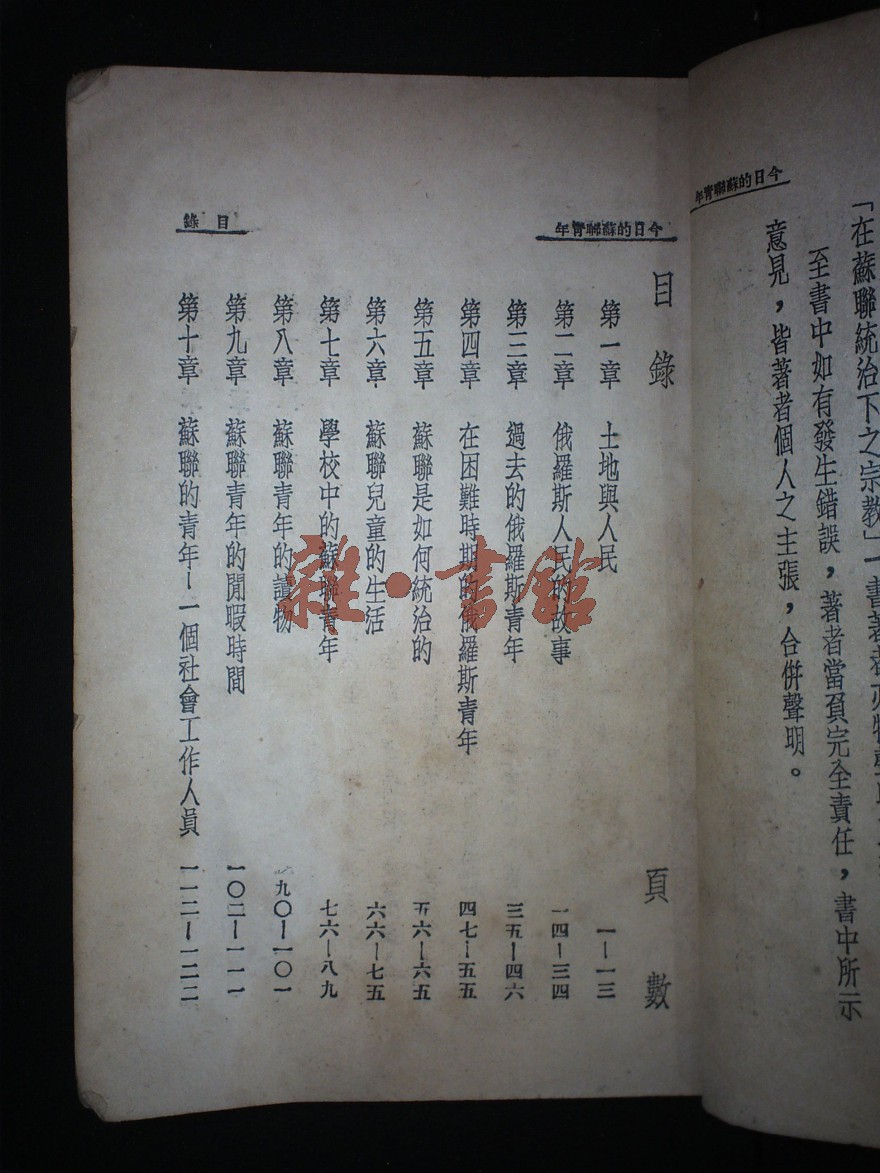 今日的蘇聯青年
「在蘇聯統治下之宗教」一書著者亦
至書中如有發生錯誤，著者當負完全責任，書中所示
意見，皆著者個人之主張，合併聲明。
今日的蘇聯青年
目錄
目錄 頁數
第一章 土地與人民 一－一三
第二章 俄羅斯人民的故事 一四－三四
第三章 過去的俄羅斯青年 三五－四六
第四章 在困難時期的俄羅斯青年 四七－五五
第五章 蘇聯是如何統治的 五六－六五
第六章 蘇聯兒童的生活 六六－七五
第七章 學校中的蘇聯青年 七六－八九
第八章 蘇聯青年的讀物 九〇－一〇一
第九章 蘇聯青年的閒暇時間 一〇二－一一一
第十章 蘇聯的青年－一個社會工作人員 一一二－一二二
雜·書館